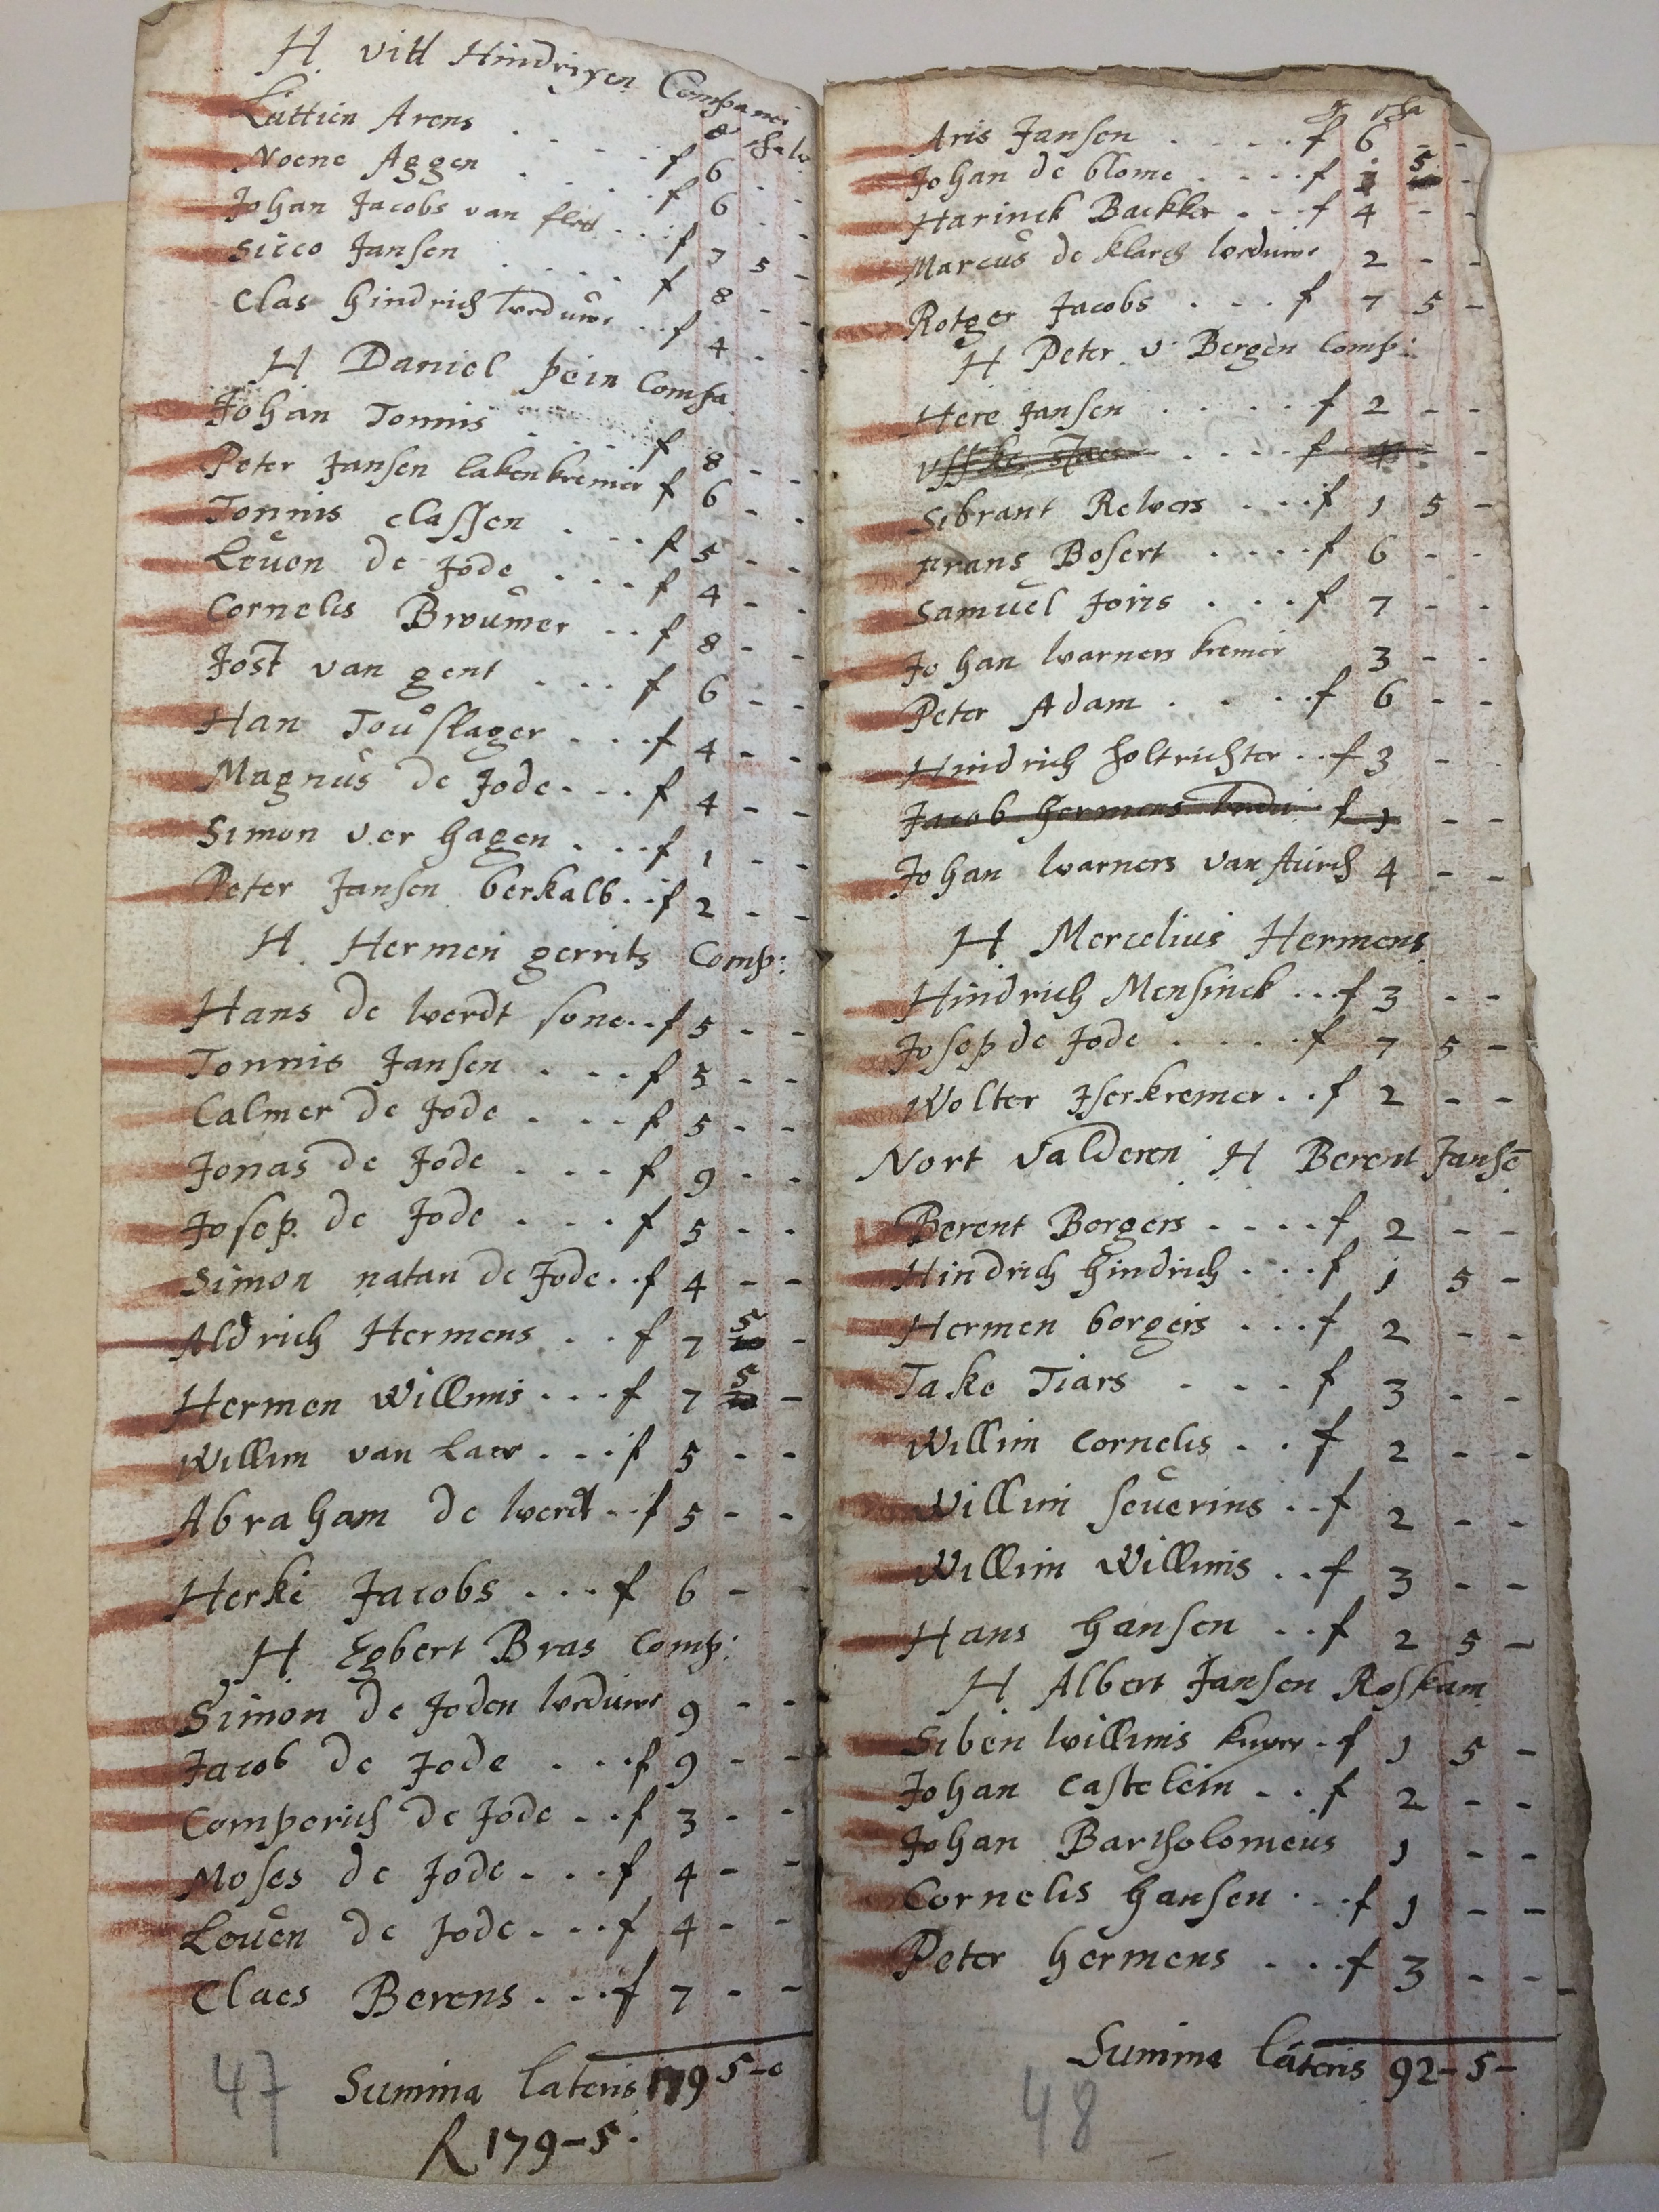 H. vitt Hindrixen Companei
g schalr
Luttien Arens . . . . f 6 - -
Noene Aggen . . . . f 6 - -
Johan Jacobs van flett . . f 7 5 -
Sicco Jansen . . . . f 8 - -
Clas Hindrich weduwe . . f 4 - -
H Daniel pein Compa
Johan Tonnis . . . . f 8 - -
Peter Jansen lakenkremer f 6 - -
Tonnis classen . . . f 5 - -
Leuen de Jode . . . f 4 - -
Cornelis Brouwer . . f 8 - -
Jost van gent . . . f 6 - -
Han Touslager . . . f 4 - -
Magnus de Jode . . . f 4 - -
Simon ver hagen . . . f 1 - -
Peter Jansen berkalb . . f 2 - -
H. Hermen gerrits Comp:
Hans de werdt sone . . f 5 - -
Tonnis Jansen . . . f 5 - -
Calmer de Jode . . . f 5 - -
Jonas de Jode . . . f 9 - -
Josep. de Jode . . . f 5 - -
Simon natan de Jode . . f 4 - -
Aldrich Hermens . . f 7 5 -
Hermen Willims . . . f 7 5 -
Willim van Laer . . . f 5 - -
Abraham de werdt . . f 5 - -
Herke Jacobs . . . f 6 -
H. Egbert Bras Comp:
Simon de Joden weduwe 9 - -
Jacob de Jode . . . f 9 - -
Comperich de Jode . . f 3 - -
Moses de Jode . . . f 4 - -
Leuen de Jode . . . f 4 - -
Claes Berens . . . f 7 - -
Summa lateris 179 5 - 0
R 179 - 5 .
47
g scha
Aris Jansen . . . . f 6 - -
Johan de blome . . . f 1 5 -
Harinck Backker . . . f 4 - -
Marcus de klarch weduwe 2 - -
Rotger Jacobs . . . f 7 5 -
H Peter v. Bergen Comp:
Here Jansen . . . . f 2 - -
Uffke . . . . f 4 - -
Sibrant Relvers . . . f 1 5 -
Frans Bosert . . . . f 6 - -
Samuel Joris . . . f 7 - -
Johan warners kremer 3 - -
Peter Adam . . . . f 6 - -
Hindrich Holtrichter . . f 3 - -
Jacob Hermens wedu: f 1 - -
Johan warners van Aurich 4 - -
H Mercelius Hermens
Hindrich Mensinck . . . f 3 - -
Josep de Jode . . . . f 7 5 -
Wolter Iserkremer . . f 2 - -
Nort valderen H Berent Jansē
Berent Borgers . . . . f 2 - -
Hindrich Hindrich . . . f 1 5 -
Hermen borgers . . . f 2 - -
Take Tiars . . . f 3 - -
Willim Cornelis . . f 2 - -
Willim seuerins . . f 2 - -
Willim Willims . . f 3 - -
Hans Hansen . . f 2 5 -
H Albert Jansen Roskam
Siben willims kuper . f 1 5 -
Johan Castelein . . f 2 - -
Johan Bartholomeus 1 - -
Cornelis Hansen . . f 1 - -
Peter Hermens . . . f 3 - -
Summa lateris 92 - 5 -
48